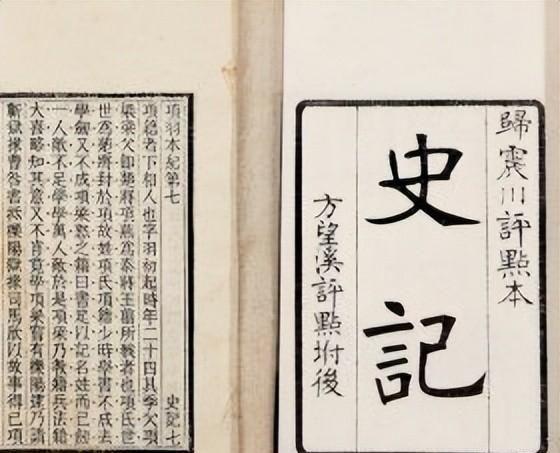 歸震川評點本
史記
方望溪評點坿後
項羽本紀第七 史記七
項籍者下相人也字羽初起時年二十四其季父項
梁梁父卽楚將項燕爲秦將王翦所戮者也項氏世
世爲楚將封於項故姓項氏項籍少時學書不成去
學劍又不成項梁怒之籍曰書足以記名姓而已劍
一人敵不足學學萬人敵於是項梁乃教籍兵法籍
大喜略知其意又不肯竟學項梁嘗有櫟陽逮乃請
蘄獄掾曹咎書抵櫟陽獄掾司馬欣以故事得已項